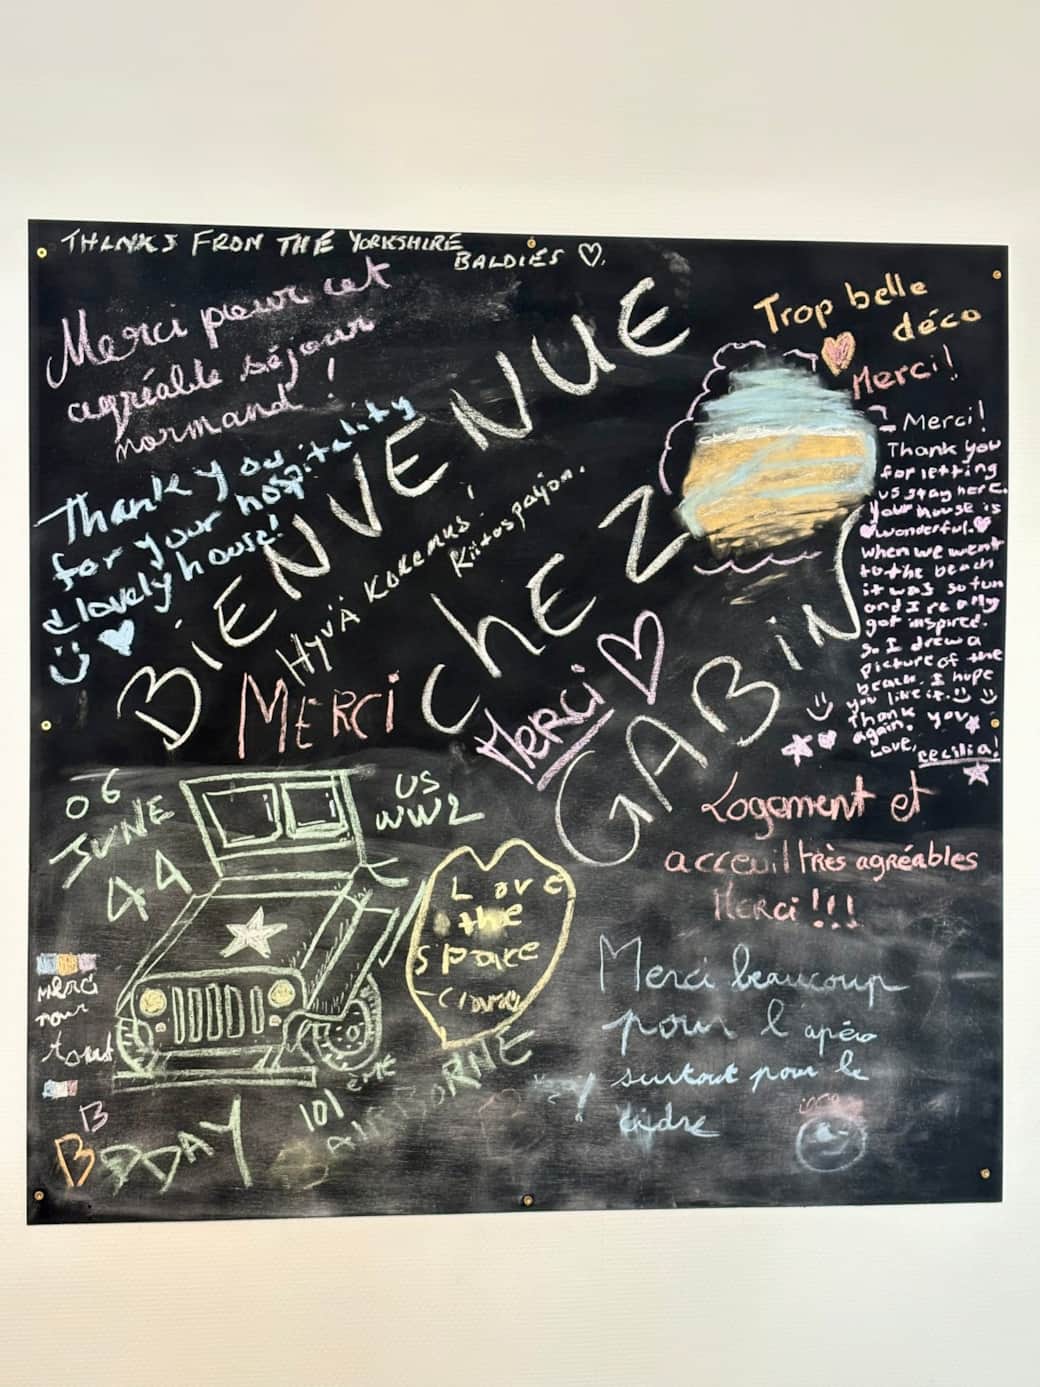 THANKS FROM THE YORKSHIRE
BALDIES
Merci pour cet
agréable séjour
normand !
Thank you
for your hospitality
& lovely house!
BIENVENUE
Hyvä Kokemus!
Kiitospaljon.
CHEZ
GABIN
MERCI
Merci
Trop belle
déco
Merci!
Merci!
Thank you
for letting
us stay here.
your house is
wonderful.
when we went
to the beach
it was so fun
and I really
got inspired.
So I drew a
picture of the
beach. I hope
you like it.
Thank you
again.
Love,
cecilia!
Logement et
acceuil très agréables
Merci!!!
Merci beaucoup
pour l'apéro
surtout pour le
06
JUNE
44
US
WW2
Love
the
space
merci
pour
tout
B
B
DDAY
101 EME
AIRBORNE